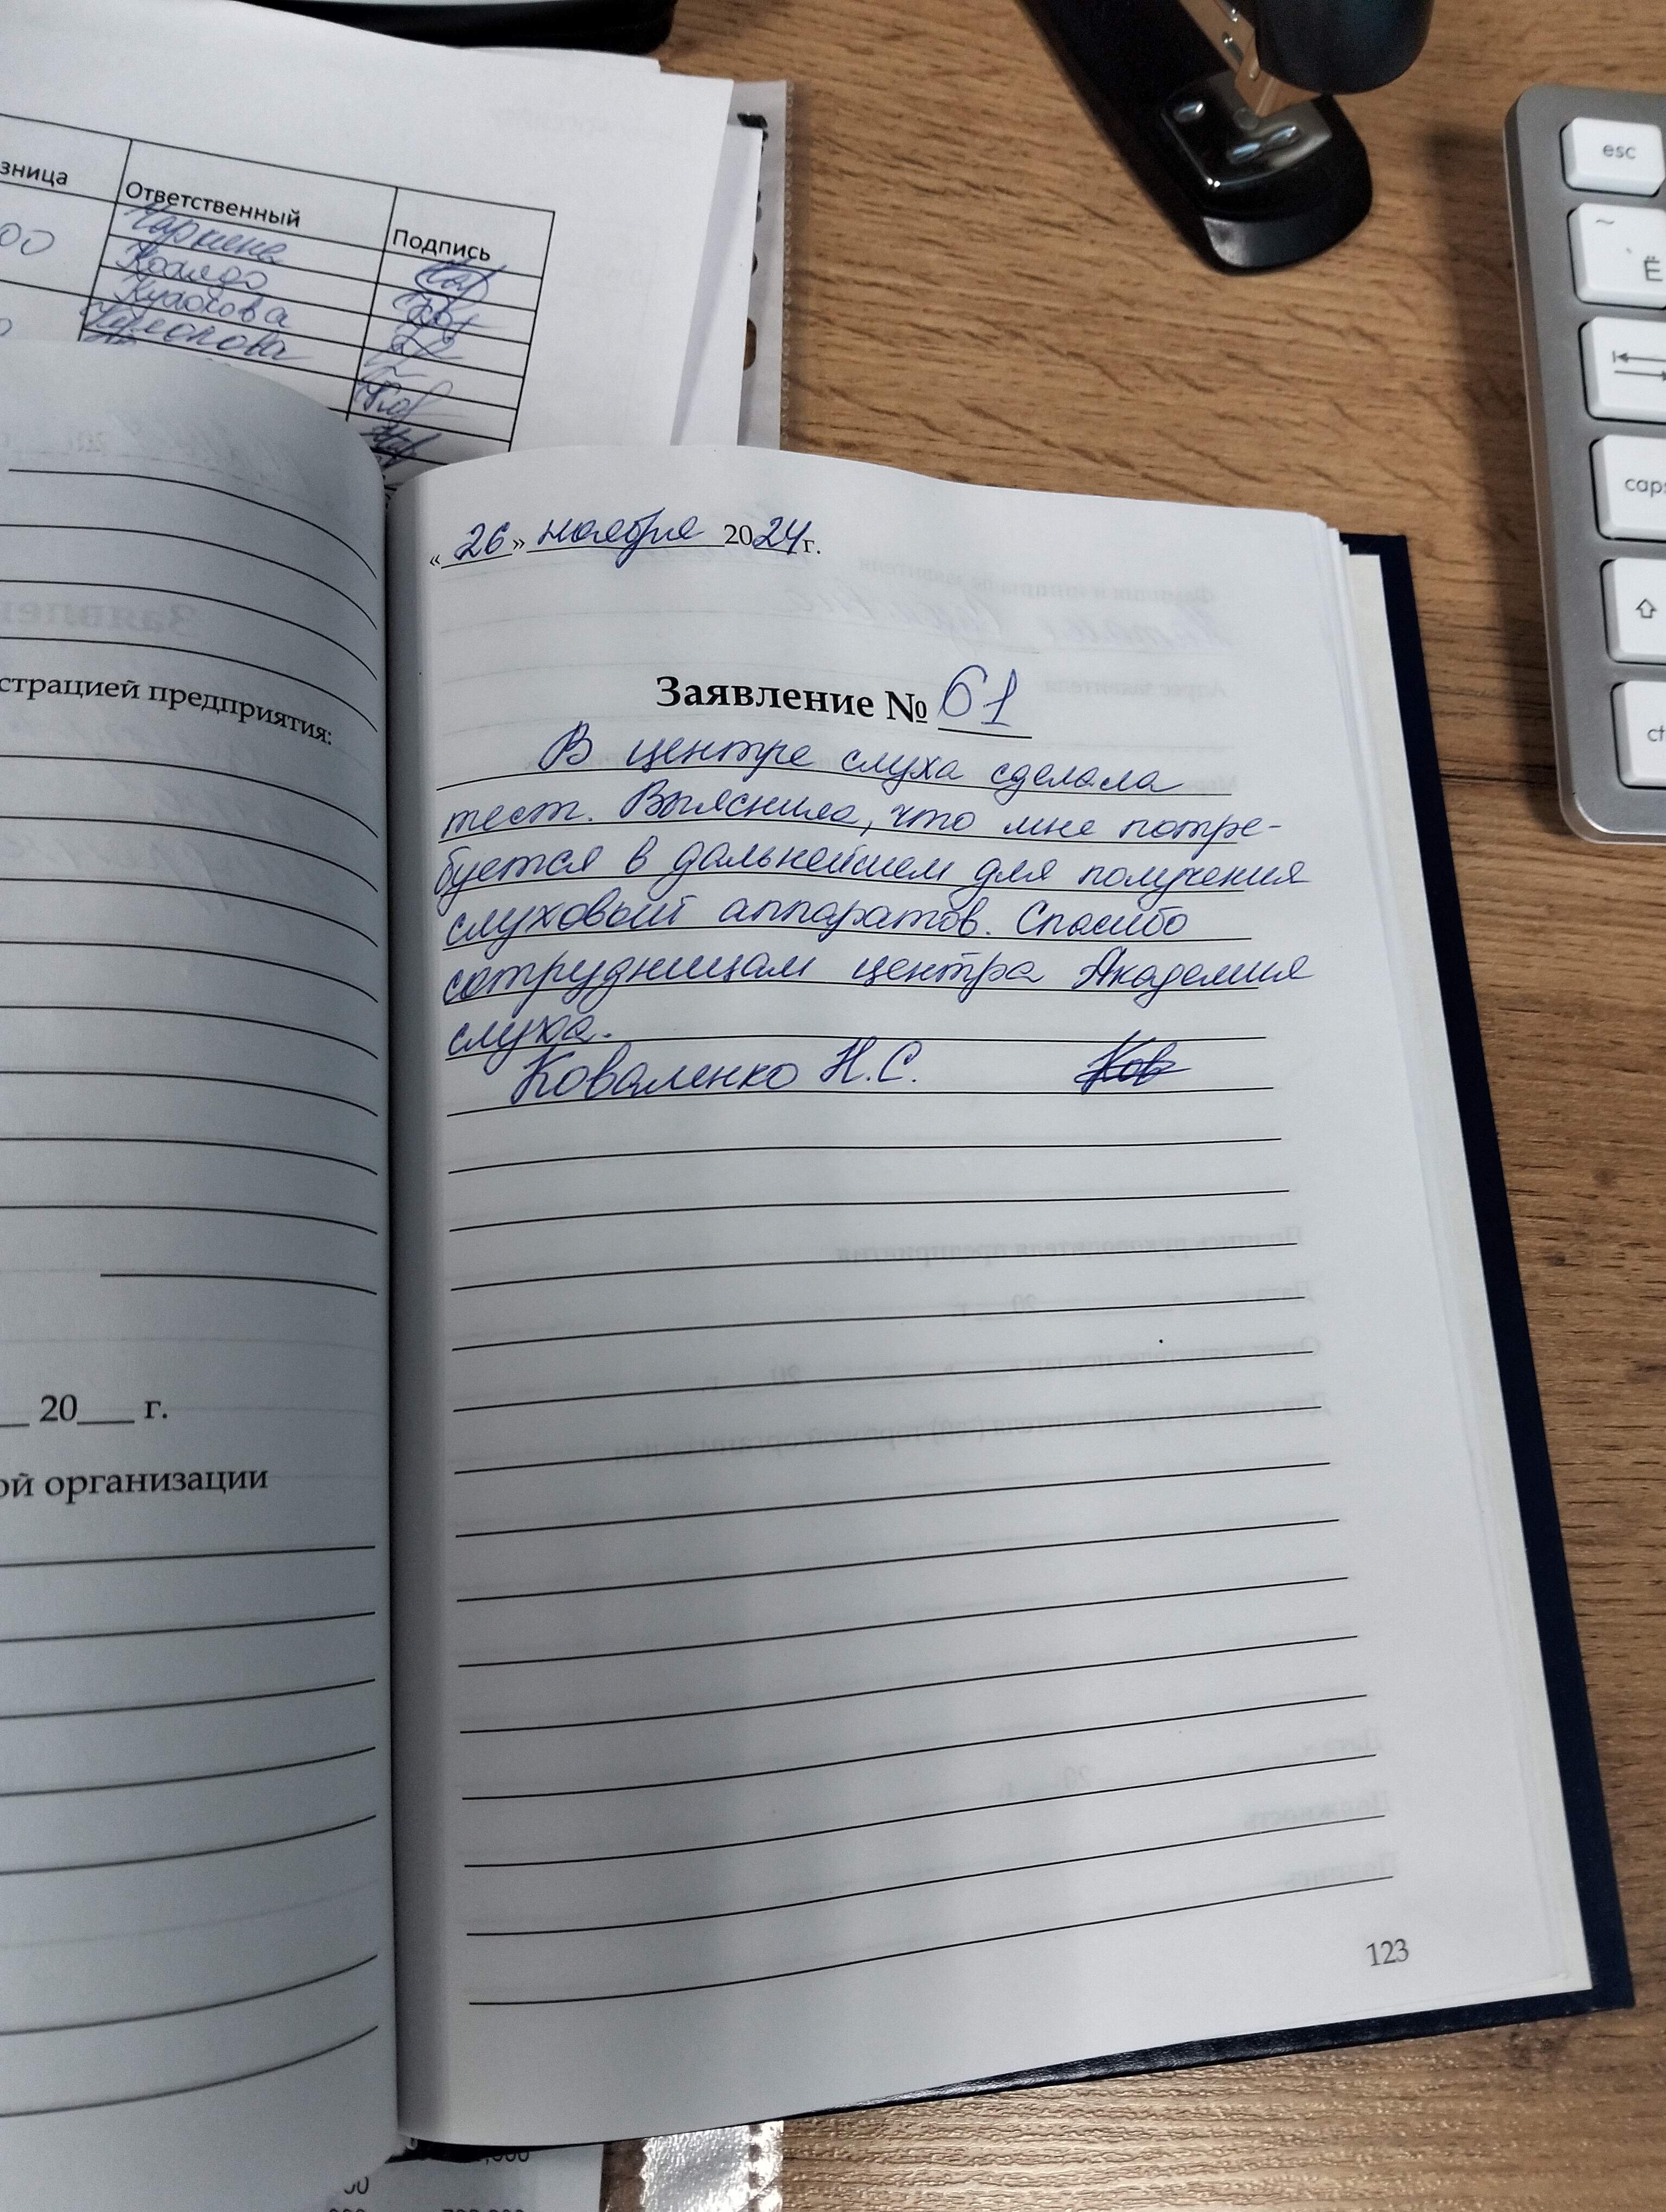 зница
Ответственный
Подпись
00
Кулакова
страцией предприятия:
20 г.
ой организации
« 26 » ноября 2024 г.
Заявление № 61
В центре слуха сделала
тест. Выяснила, что мне потре-
буется в дальнейшем для получения
слуховый аппаратов. Спасибо
сотрудницам центра Академия
слуха.
Коваленко Н.С. Ков
123
esc
~
` Ё
caps